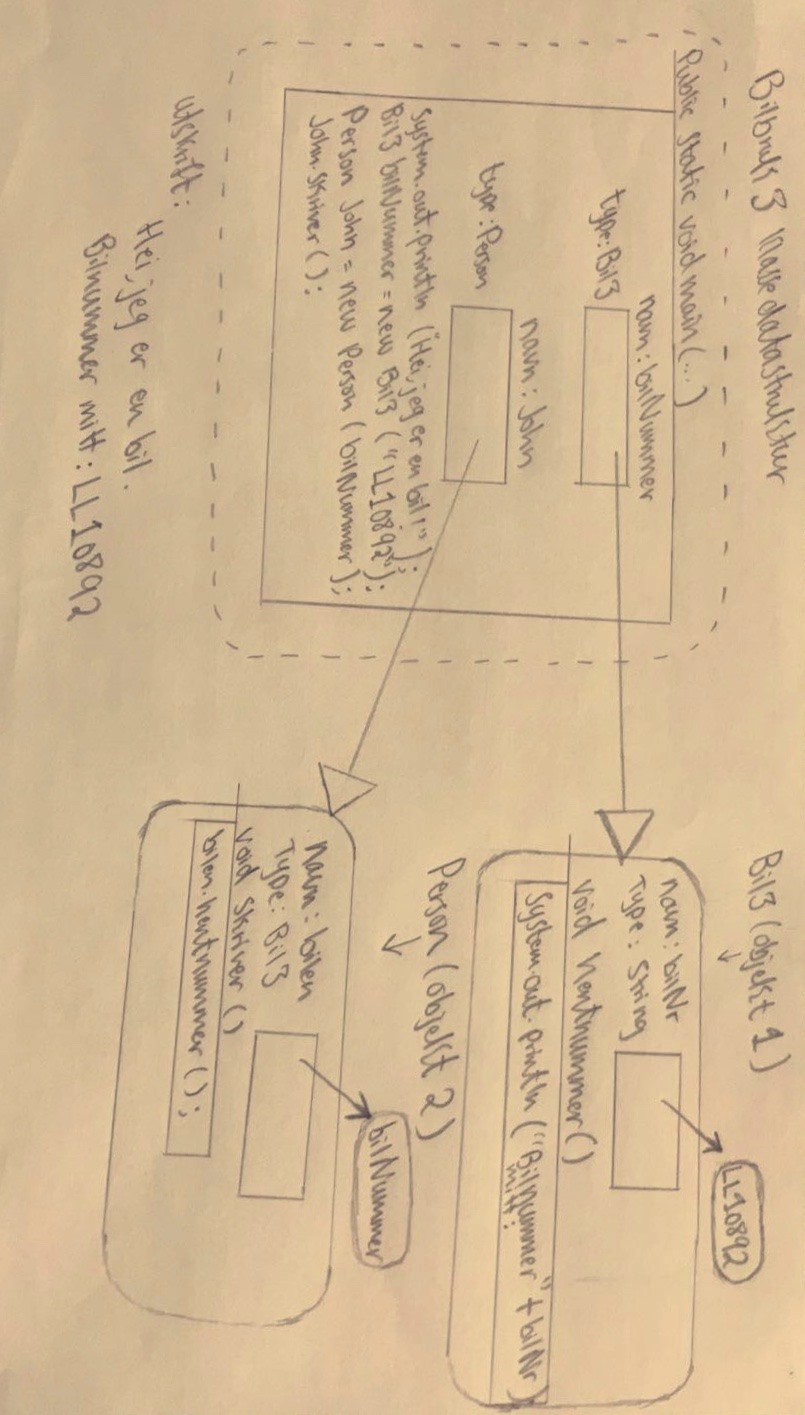 Bilbruk 3 klasse datastruktur
Public static void main(...)
navn: bilNummer
type: Bil3
navn: John
type: Person
System.out.println ("Hei, jeg er en bil!");
Bil3 bilNummer = new Bil3 ("LL10892");
Person John = new Person (bilNummer);
John.skriver();
utskrift:
Hei, jeg er en bil.
Bilnummer mitt: LL10892
Bil3 (objekt 1)
navn: bilNr
Type: String
LL10892
void hentnummer()
System.out.println ("Bilnummer mitt:" + bilNr)
Person (objekt 2)
navn: bilen
Type: Bil3
bilNummer
void skriver ()
bilen.hentnummer();